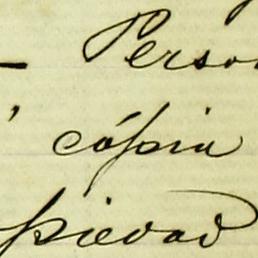 – Perso
cópia
piedad